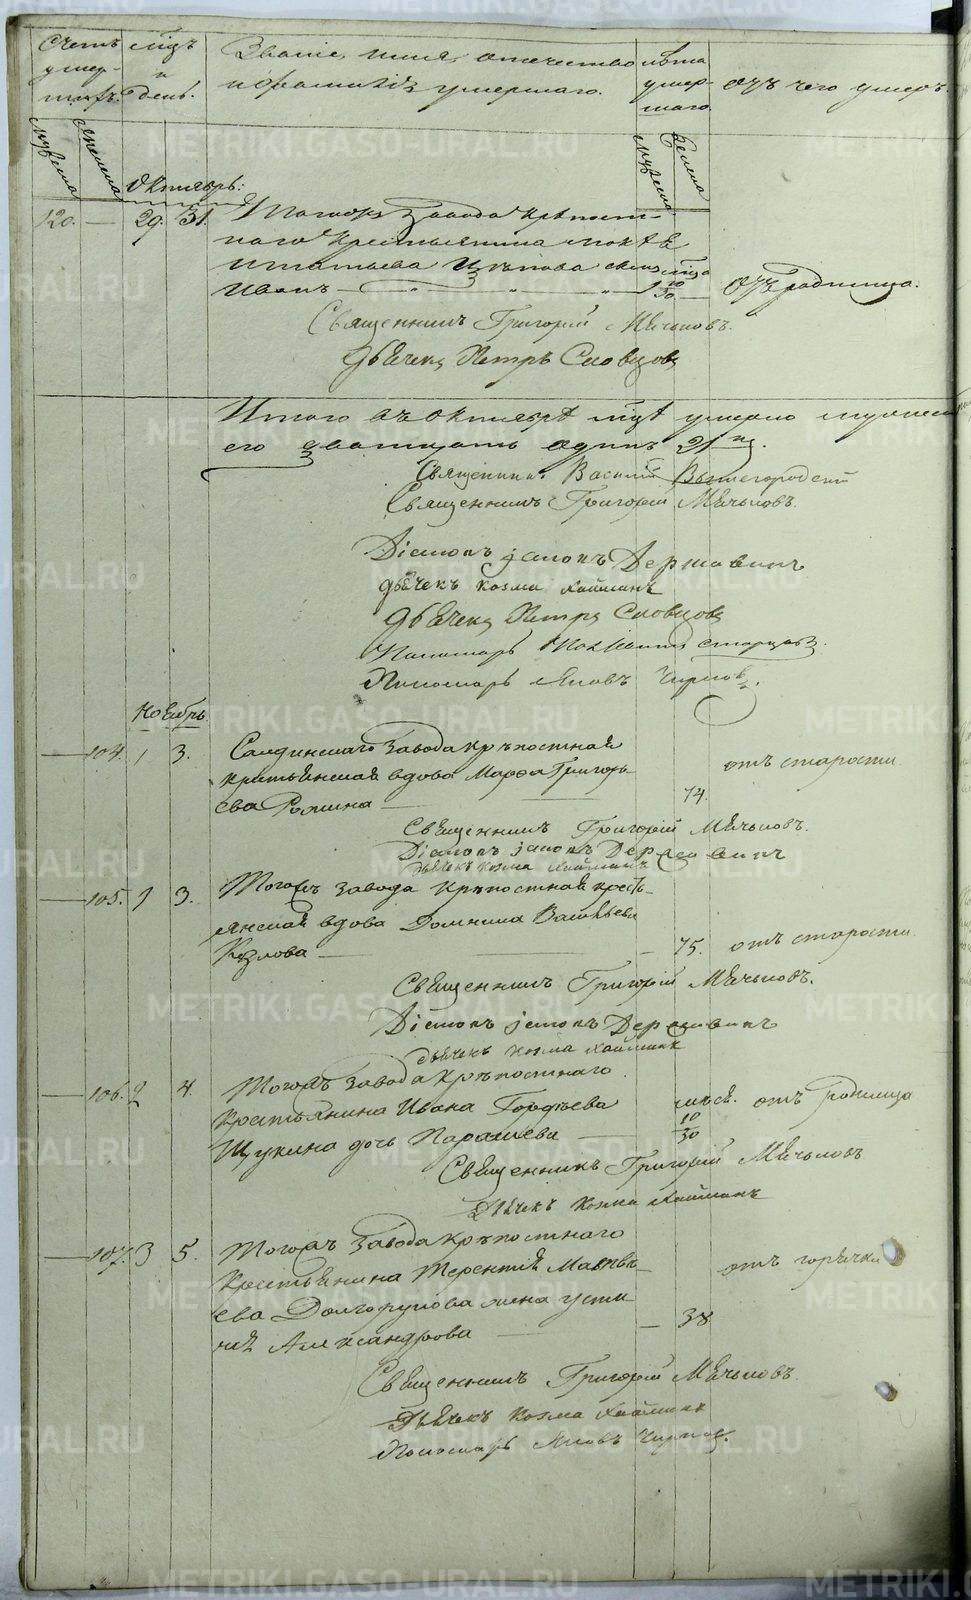 Счетъ умер-шихъ.
мцъ и день.
Званіе, имя, отечество и фамилія умершаго.
лѣта умер-шаго.
отъ чего умеръ
мужеска
женска
мужеска
женска
Октябрь:
120. — 29. 31. Тогожъ Завода Крѣпост-
наго Крестьянина
Игнатьева сынъ мца
Иванъ — 10/30 — отъ родимца.
Священникъ Григорій Мячковъ.
Дьячекъ Петръ Словцовъ
Итого въ Октябрѣ мцѣ умерло мужеск
его дватцать одинъ 21 н.
Священникъ Василій Вышегородскій
Священникъ Григорій Мячковъ.
Діаконъ Іаковъ Державинъ
Дьячекъ Козма Хайминъ
Дьячекъ Петръ Словцовъ
Пономарь Старцовъ.
Пономарь Яковъ Чирковъ.
Ноябрь
— 104. 1 3. Салдинскаго Завода крѣпостная
крестьянская вдова Марѳа Григорь- отъ старости
ева — 74.
Священникъ Григорій Мячковъ.
Діаконъ Іаковъ Державинъ
Дьячекъ Козма Хайминъ
— 105. 1 3. Тогожъ Завода Крѣпостная кресть-
янская вдова Домника Васильева
Козлова — 75. отъ старости
Священникъ Григорій Мячковъ.
Діаконъ Іаковъ Державинъ
Дьячекъ Козма Хаймин
— 106. 2 4. Тогожъ Завода Крѣпостнаго
Крестьянина Ивана Гордѣева мѣся. отъ родимца
Щукина дочь Параскева — 10/30
Священникъ Григорій Мячковъ
Дьячекъ Козма Хайминъ
— 107. 3 5. Тогожъ Завода Крѣпостнаго
Крестьянина Терентія Матвѣ- отъ горячки
ева Долгорукова жена усти-
нія Александрова — 38
Священникъ Григорій Мячковъ.
Дьячекъ Козма Хаймин
Пономарь Яковъ Чирков.
METRIKI.GASO-URAL.RU